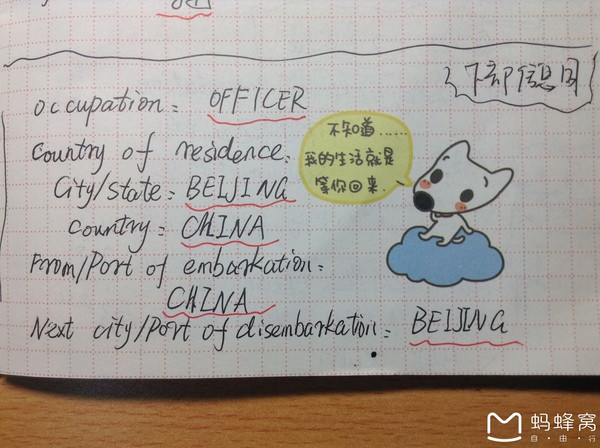 下部信息同
Occupation: OFFICER
Country of residence:
City/State: BEIJING
Country: CHINA
From/Port of embarkation:
CHINA
Next city/Port of disembarkation: BEIJING
不知道......
我的生活就是
等你回来.
蚂蜂窝
自·由·行